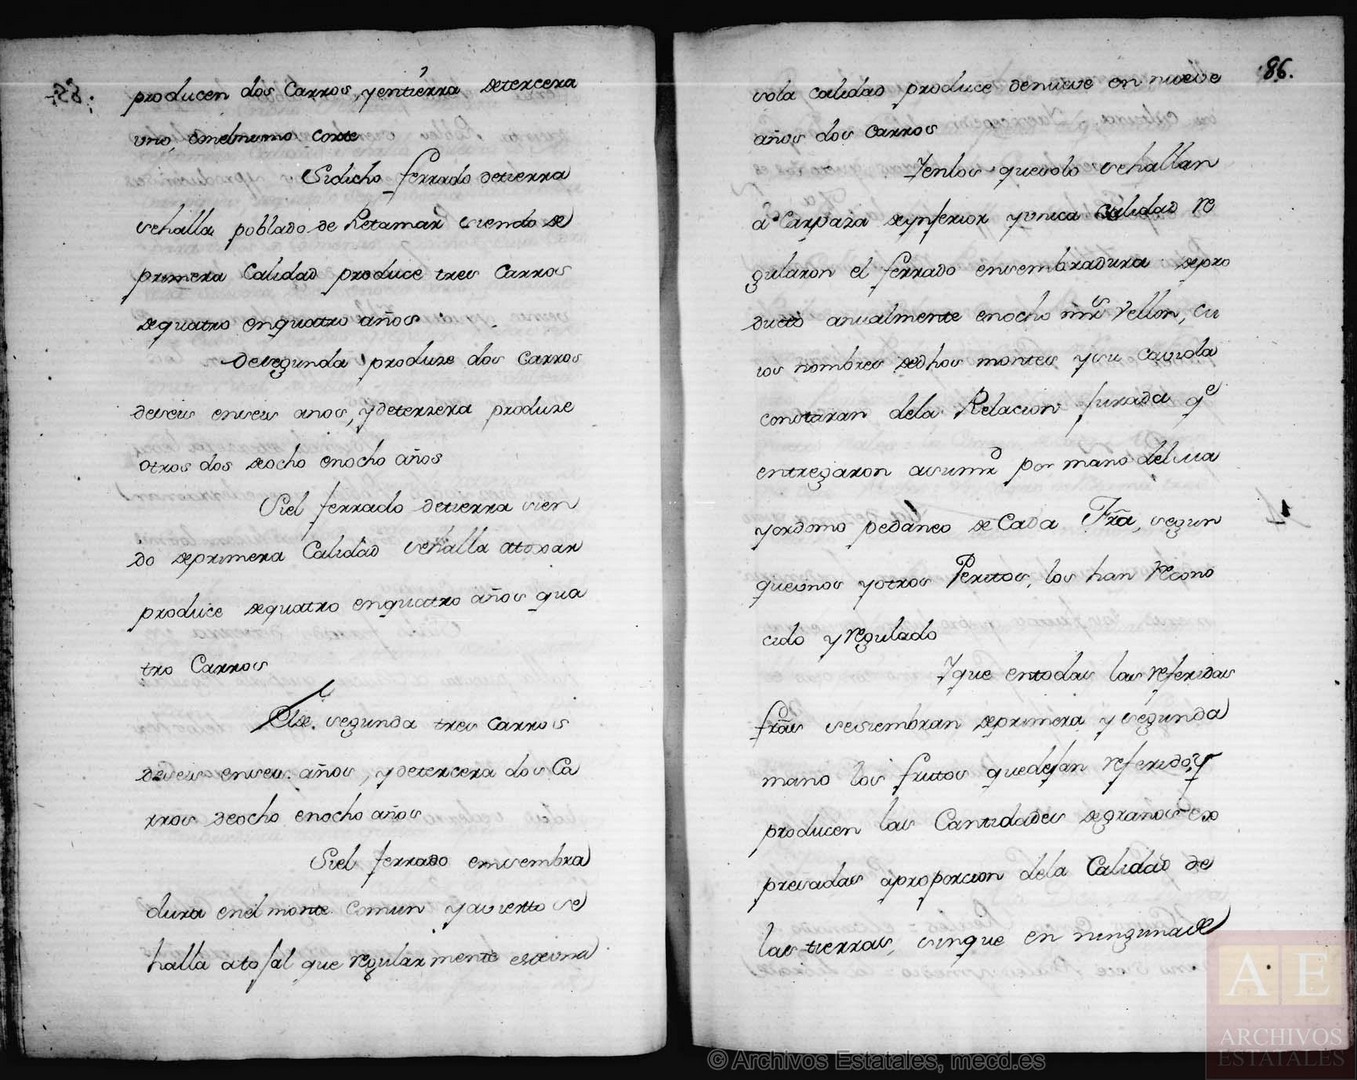 :85:
producen dos Carros, y entierra detercera
uno, enelmismo corte
Sidicho ferrado detierra
sehalla poblado de Retamar siendo de
primera Calidad produce tres Carros
dequatro enquatro años
Desegunda produze dos Carros
deseis enseis anos, ydeterzera produze
otros dos deocho enocho años
Siel ferrado detierra sien
do deprimera Calidad sehalla atoxar
produce dequatro enquatro años qua
tro Carros
De segunda tres Carros
deseis enseis años, ydetercera dos Ca
rros deocho enocho años
Siel ferrado ensembra
dura enel monte comun yavierto se
halla atojal que regularmente esdeuna
86.
sola calidad produce denueve en nueve
años dos Carros
Yenlos quesolo sehallan
Carpaza deynferior yunica Calidad re
gularon el ferrado ensembradura depro
ducto anualmente enocho mrs Vellon, cu
ios nombres dedhos montes ysu cavida
constaran dela Relacion Jurada qe
entregaron asumrd por mano delma
yordomo pedaneo de Cada Fra, segun
queunos yotros Peritos, los han recono
cido y regulado
Yque entodas las referidas
frās sesiembran deprimera y segunda
mano los frutos quedejan referido, y
producen las Cantidades degranos ex
presadas aproporcion dela Calidad de
las tierras, sinque en ningunade
A E
ARCHIVOS
ESTATALES
© Archivos Estatales, mecd.es